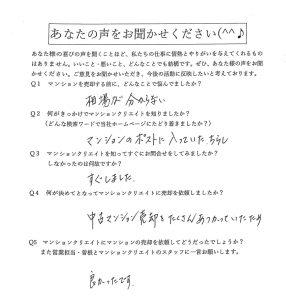 あなたの声をお聞かせください(^^♪
あなた様の喜びの声を聞くことほど、私たちの仕事に情熱とやりがいを与えてくれるもの
はありません。いいこと・悪いこと、どんなことでも結構です。ぜひ、あなた様の声をお聞
かせください。ご意見をお聞かせいただき、今後の活動に反映したいと考えております。
Q1 マンションを売却する前に、どんなことで悩んでましたか?
相場が分からない
Q2 何がきっかけでマンションクリエイトを知りましたか?
(どんな検索ワードで当社ホームページにたどり着きましたか?)
マンションのポストに入っていたちらし
Q3 マンションクリエイトを知ってすぐにお問合せをしてみましたか?
しなかったのは何故ですか?
すぐしました
Q4 何が決めてとなってマンションクリエイトに売却を依頼しましたか?
中古マンション売却をたくさんあつかっていたため
Q5 マンションクリエイトにマンションの売却を依頼してどうだったでしょうか?
また営業担当・曽根とマンションクリエイトのスタッフに一言お願いします。
良かったです